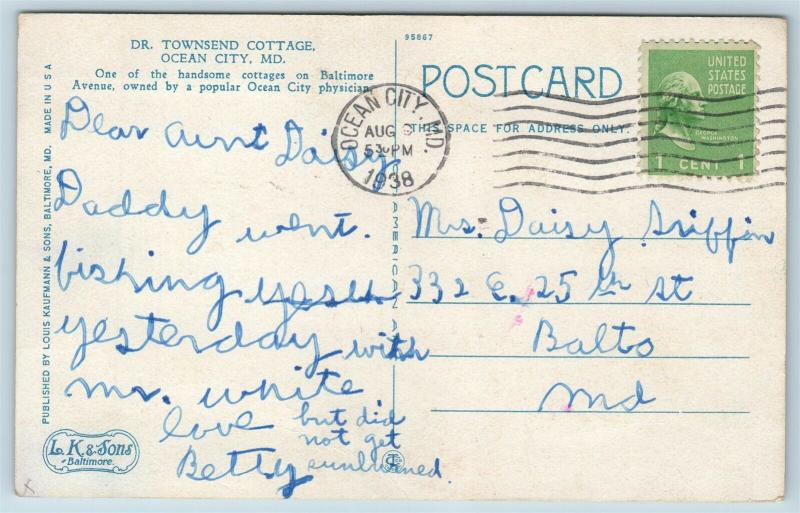 DR. TOWNSEND COTTAGE,
OCEAN CITY, MD.
One of the handsome cottages on Baltimore
Avenue, owned by a popular Ocean City physician.
Dear Aunt Daisy
Daddy went.
fishing yesu
yesterday with
mr. white
love
Betty
but did
not get
sunburned.
95867
POSTCARD
THIS SPACE FOR ADDRESS ONLY.
OCEAN CITY, MD.
AUG
530PM
1938
UNITED
STATES
POSTAGE
GEORGE
WASHINGTON
1 CENT 1
Mrs. Daisy Griffin
332 E. 25 th st
Balto
Md
MADE IN U S A
PUBLISHED BY LOUIS KAUFMANN & SONS, BALTIMORE, MD.
AMERICAN A
L. K & Sons
Baltimore